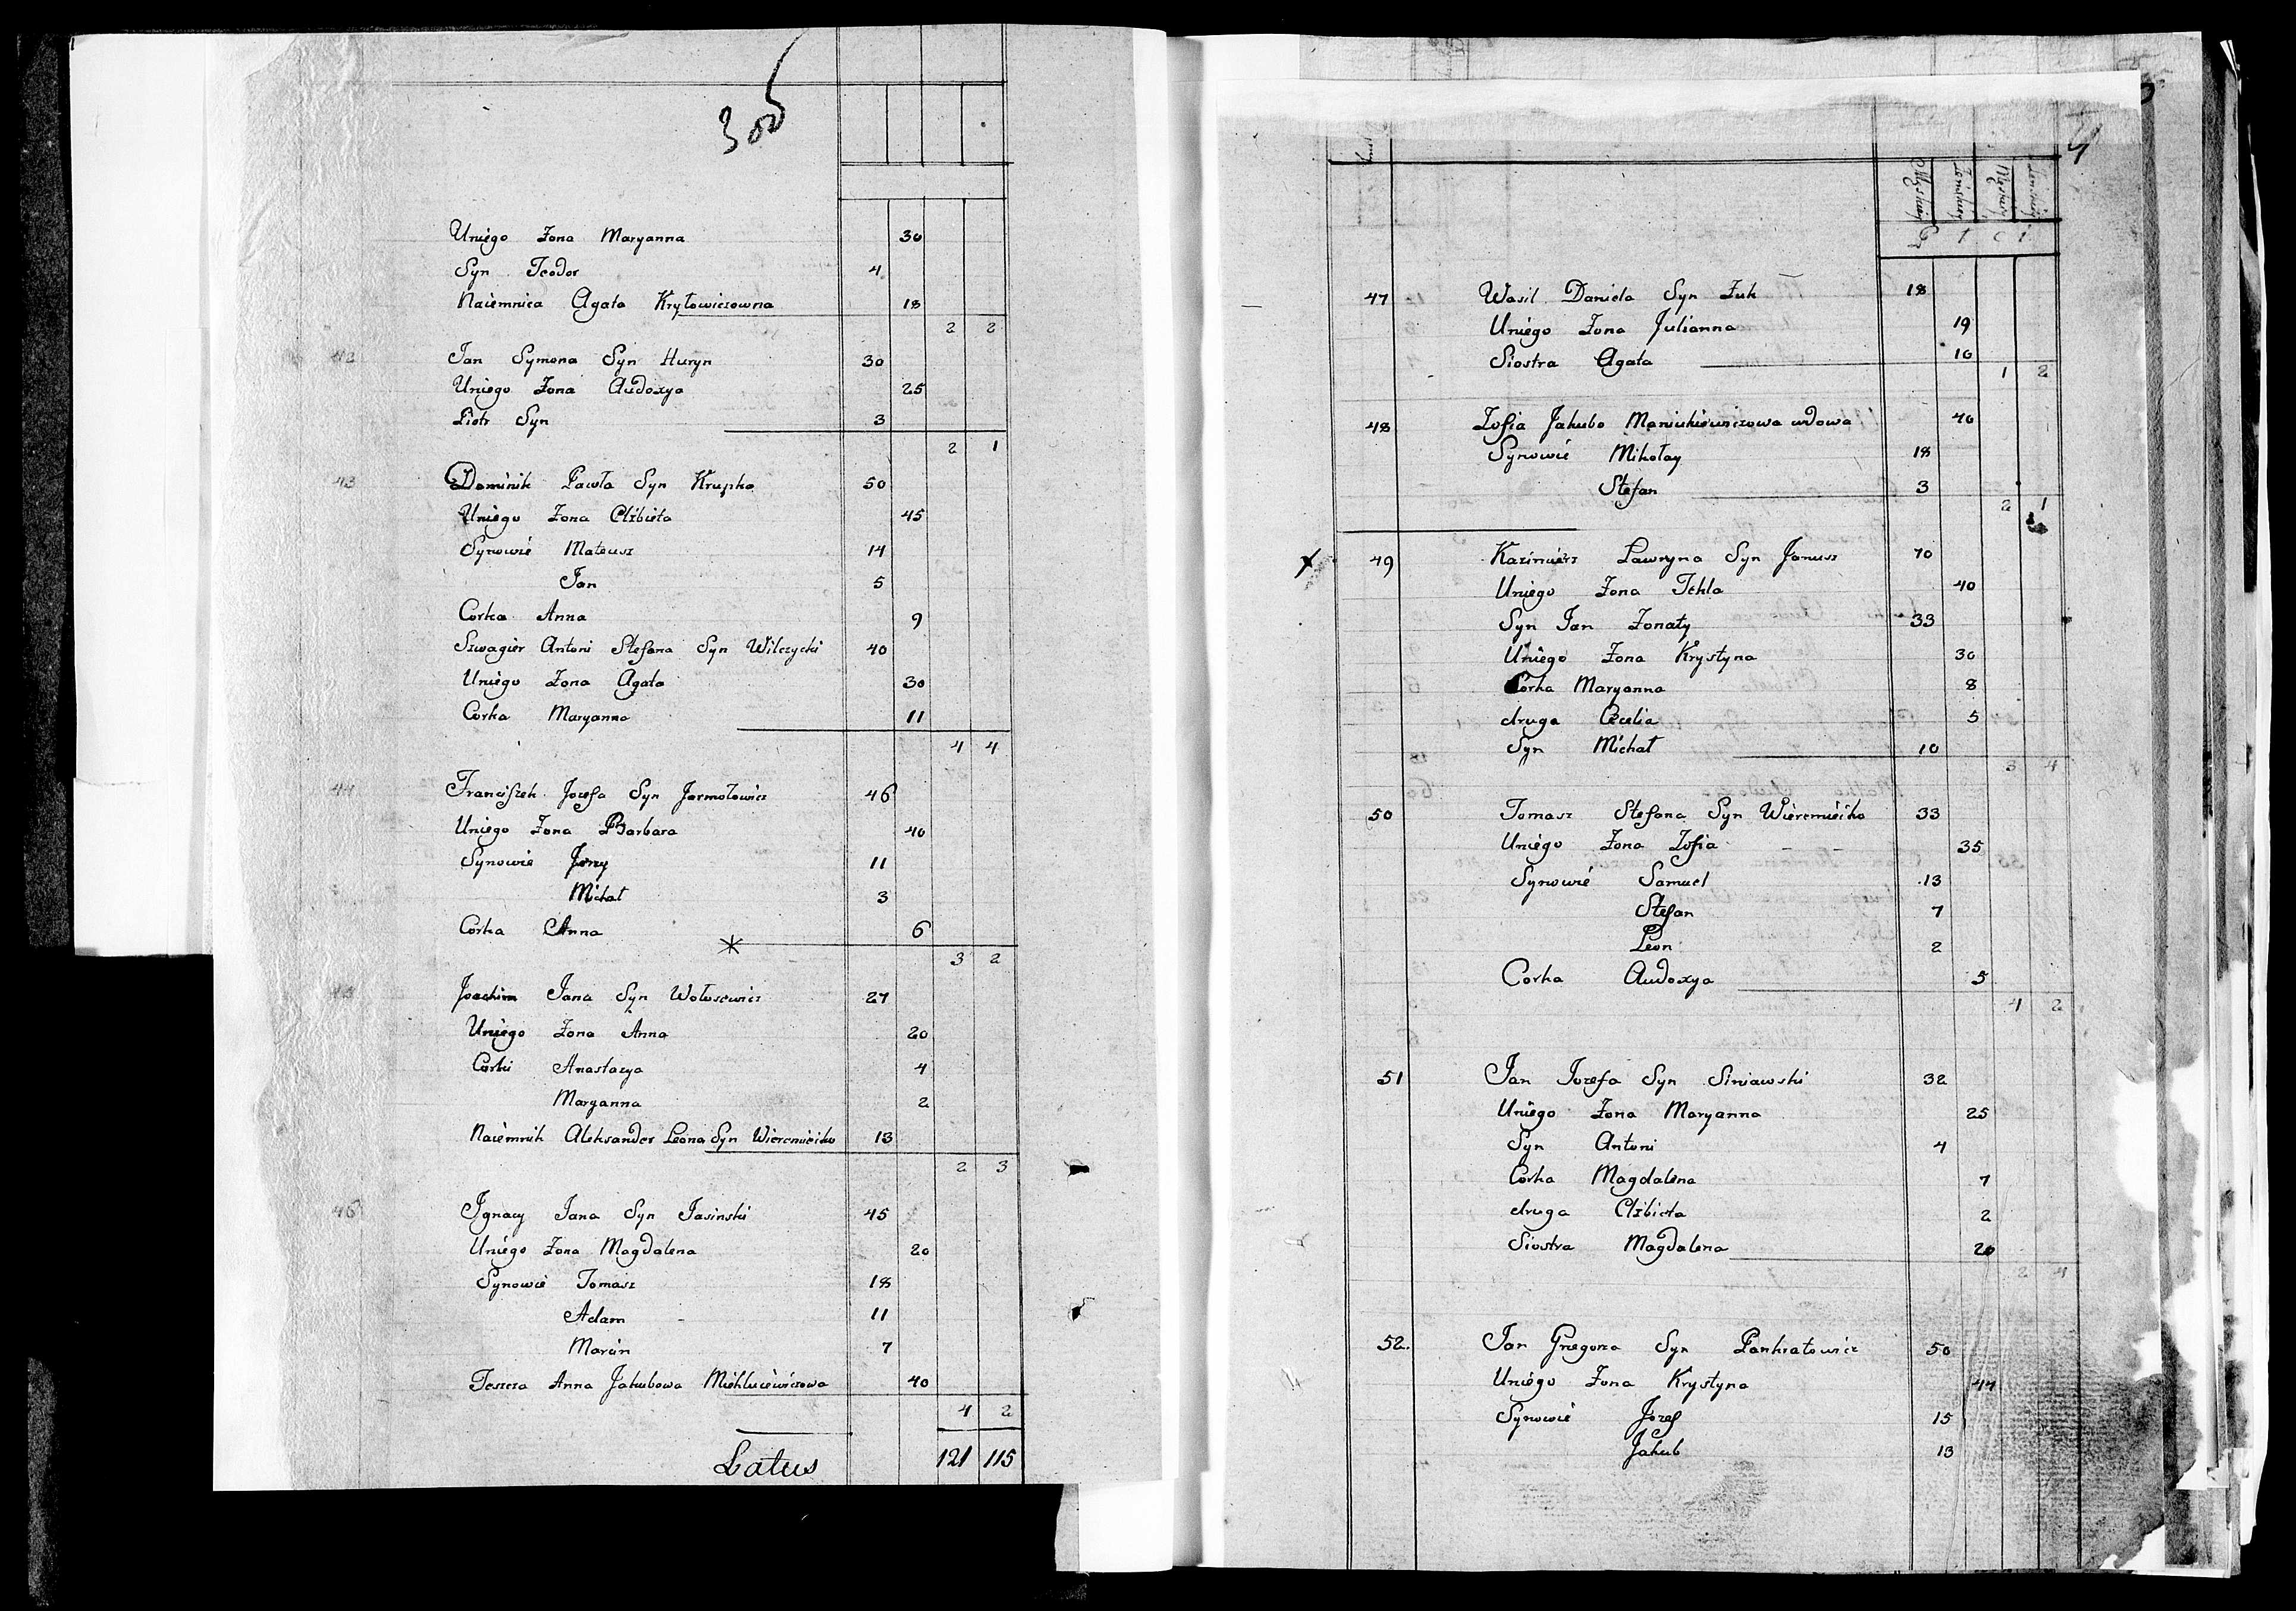 Uniego Zona Maryanna 30
Syn Teodor 4
Naiemnica Agata Kryłowiczowna 18
2 2
42 Jan Symona Syn Huryn 30
Uniego Zona Audoxya 25
Piotr Syn 3
2 1
43 Dominik Pawła Syn Krupko 50
Uniego Zona Elżbieta 45
Synowie Mateusz 14
Jan 5
Corka Anna 9
Szwagier Antoni Stefana Syn Wilczycki 40
Uniego Zona Agata 30
Corka Maryanna 11
4 4
44 Franciszek Jozefa Syn Jarmołowicz 46
Uniego Zona Barbara 40
Synowie Jerzy 11
Michał 3
Corka Anna 6
3 2
45 Joachim Jana Syn Wołosewicz 27
Uniego Zona Anna 20
Corki Anastazya 4
Maryanna 2
Naiemnik Aleksander Leona Syn Wieremieiko 13
2 3
46 Ignacy Jana Syn Jasinski 45
Uniego Zona Magdalena 20
Synowie Tomasz 18
Adam 11
Marcin 7
Teszcza Anna Jakubowa Michluciewiczowa 40
4 2
Latus 121 115
4
47 Wasil Daniela Syn Zuk 18
Uniego Zona Julianna 19
Siostra Agata 16
1 2
48 Zofia Jakuba Maniukiewiczowa wdowa 40
Synowie Mikołay 18
Stefan 3
2 1
49 Kazimierz Lawryna Syn Janusz 70
Uniego Zona Tekla 40
Syn Jan Zonaty 33
Uniego Zona Krystyna 30
Corka Maryanna 8
druga Cecelia 5
Syn Michał 10
3 4
50 Tomasz Stefana Syn Wieremieiko 33
Uniego Zona Zofia 35
Synowie Samuel 13
Stefan 7
Leon 2
Corka Audoxya 5
4 2
51 Jan Jozefa Syn Siniawski 32
Uniego Zona Maryanna 25
Syn Antoni 4
Corka Magdalena 7
druga Elżbieta 2
Siostra Magdalena 20
2 4
52. Jan Grzegorza Syn Pankratowicz 50
Uniego Zona Krystyna 44
Synowie Jozef 15
Jakub 13